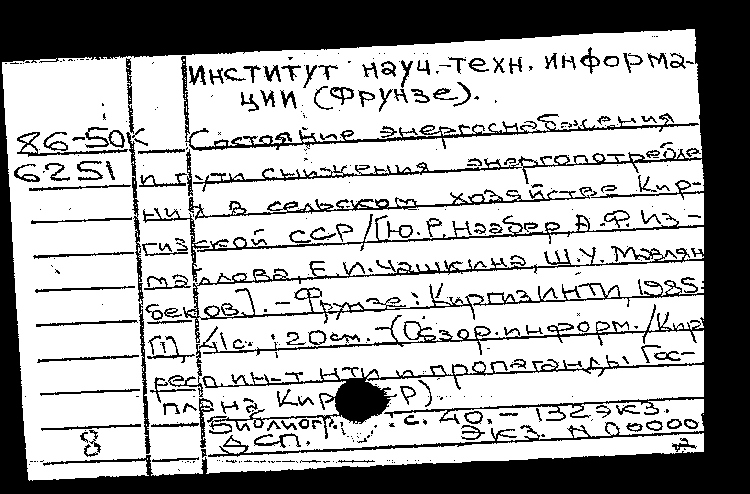 Институт науч.-техн. информа-
ции (Фрунзе).
86-50К Состояние энергоснабжения
6251 и пути снижения энергопотребле
ния в сельском хозяйстве Кир-
гизской ССР/[Ю.Р. Наабер, А.Ф. Из-
майлова, Е.И. Чашкина, Ш.У. Мавлян
беков]. - Фрунзе: КиргизИНТИ, 1985.
41с.; 20см. - (Обзор. информ./Кирг
респ. ин-т НТИ и пропаганды Гос-
плана Кир ССР).
Библиогр.: с. 40. - 132 экз.
8 ДСП. Экз. N 00000